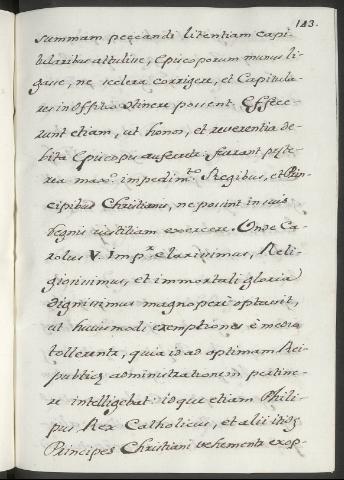 143.
summam peccandi licentiam capi-
tularibus attulisse, Episcoporum manus li-
gasse, ne scelera corrigere, et Capitula-
res in Offitio detinere possent. Effece-
runt etiam, ut honor, et reverentia de-
bita Episcopis auferretur: fuerunt præte-
rea max.º impedim.to Regibus, et Prin-
cipibus Christianis, ne possint in suis
Regnis iustitiam exercere. Unde Ca-
rolus V. Imp.r clarissimus, Reli-
giosissimus, et immortali gloria
dignissimus magnopere optavit,
ut huiusmodi exemptiones è medio
tollerentur, quia id ad optimam Rei-
publicę administrationem pertine-
re intelligebat: idque etiam Philip-
pus Rex Catholicus, et alii itidẽ
Principes Christiani vehementer exop-